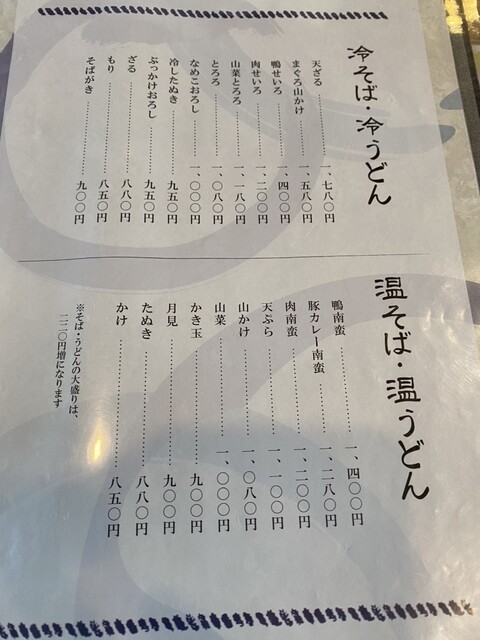 冷そば・冷うどん
天ざる…………一、七八〇円
まぐろ山かけ…………一、五八〇円
鴨せいろ…………一、四〇〇円
肉せいろ…………一、二〇〇円
山菜とろろ…………一、一八〇円
とろろ…………一、〇八〇円
なめこおろし…………一、〇〇〇円
冷したぬき…………九五〇円
ぶっかけおろし…………九五〇円
ざる…………八八〇円
もり…………八五〇円
そばがき…………九〇〇円
温そば・温うどん
鴨南蛮…………一、四〇〇円
豚カレー南蛮…………一、二八〇円
肉南蛮…………一、二〇〇円
天ぷら…………一、一〇〇円
山かけ…………一、〇八〇円
山菜…………一、〇〇〇円
かき玉…………九〇〇円
月見…………九〇〇円
たぬき…………八八〇円
かけ…………八五〇円
※そば・うどんの大盛りは、
二二〇円増になります